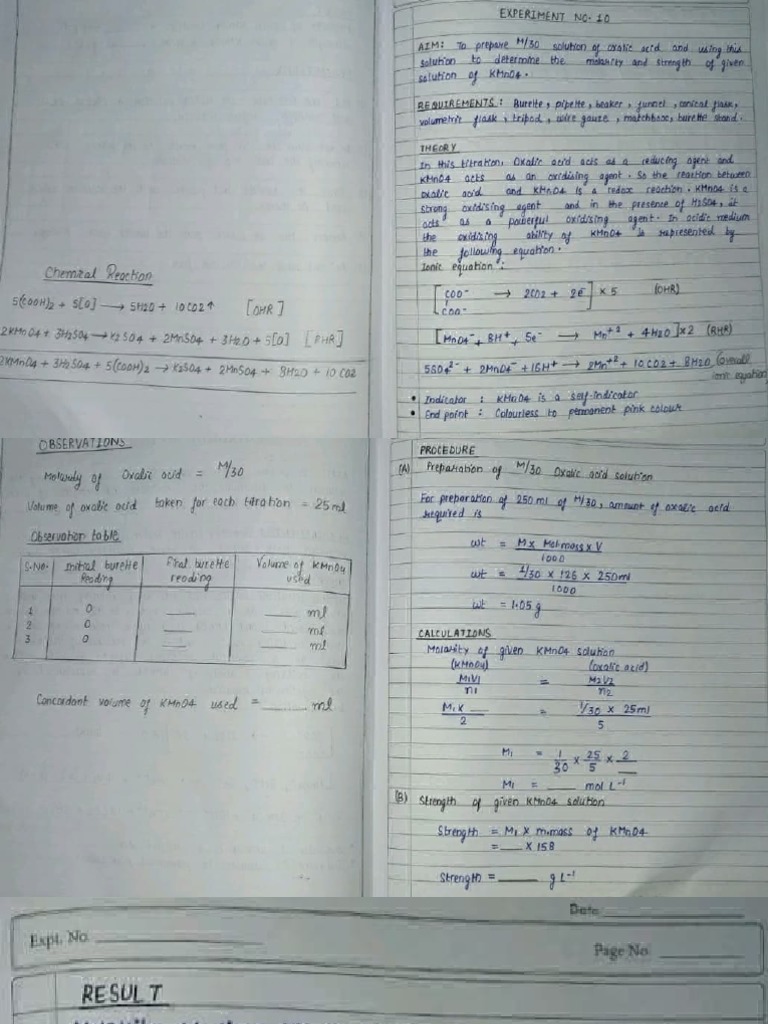 EXPERIMENT NO. 10
AIM: To prepare M/30 solution of oxalic acid and using this
solution to determine the molarity and strength of given
solution of KMnO4.
REQUIREMENTS: Burette, pipette, beaker, funnel, conical flask,
volumetric flask, tripod, wire gauze, matchbox, burette stand.
THEORY
In this titration, Oxalic acid acts as a reducing agent and
KMnO4 acts as an oxidising agent. So the reaction between
oxalic acid and KMnO4 is a redox reaction. KMnO4 is a
strong oxidising agent and in the presence of H2SO4, it
acts as a powerful oxidising agent. In acidic medium
the oxidizing ability of KMnO4 is represented by
the following equation.
Ionic equation:
[COO- → 2CO2 + 2e-] x 5 (OHR)
COO-
[MnO4- + 8H+ + 5e- → Mn+2 + 4H2O] x 2 (RHR)
5SO4 2- + 2MnO4- + 16H+ → 2Mn+2 + 10CO2 + 8H2O (overall
ionic equation)
• Indicator : KMnO4 is a self-indicator
• End point : Colourless to permanent pink colour
Chemical Reaction
5(COOH)2 + 5[O] → 5H2O + 10CO2↑ [OHR]
2KMnO4 + 3H2SO4 → K2SO4 + 2MnSO4 + 3H2O + 5[O] [RHR]
2KMnO4 + 3H2SO4 + 5(COOH)2 → K2SO4 + 2MnSO4 + 8H2O + 10CO2
OBSERVATIONS
Molarity of Oxalic acid = M/30
Volume of oxalic acid taken for each titration = 25ml
Observation table
S.No. Initial burette Reading Final burette reading Volume of KMnO4 used
1 0 ___ ___ ml
2 0 ___ ___ ml
3 0 ___ ___ ml
Concordant volume of KMnO4 used = ____ ml
PROCEDURE
(A) Preparation of M/30 Oxalic acid solution
For preparation of 250 ml of M/30, amount of oxalic acid
required is
wt = M x Mol mass x V / 1000
wt = 1/30 x 126 x 250ml / 1000
wt = 1.05 g
CALCULATIONS
Molarity of given KMnO4 solution
(KMnO4) (oxalic acid)
M1V1 / n1 = M2V2 / n2
M1 x ___ / 2 = 1/30 x 25ml / 5
M1 = 1/30 x 25/5 x 2/__
M1 = ____ mol L-1
(B) Strength of given KMnO4 solution
Strength = M1 x m.mass of KMnO4
= ___ x 158
Strength = ____ g L-1
Date
Expt. No.
Page No.
RESULT